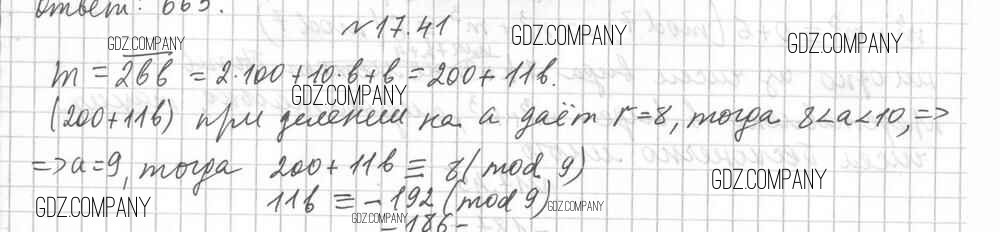 Ответ: 665.
№17.41
GDZ.COMPANY GDZ.COMPANY GDZ.COMPANY
m = 2bb = 2·100+10·b+b = 200+11b.
GDZ.COMPANY
(200+11b) при делении на a даёт r=8, тогда 8<a<10, =>
=> a=9, тогда 200+11b ≡ 8 (mod 9)
GDZ.COMPANY
11b ≡ -192 (mod 9)
GDZ.COMPANY GDZ.COMPANY GDZ.COMPANY